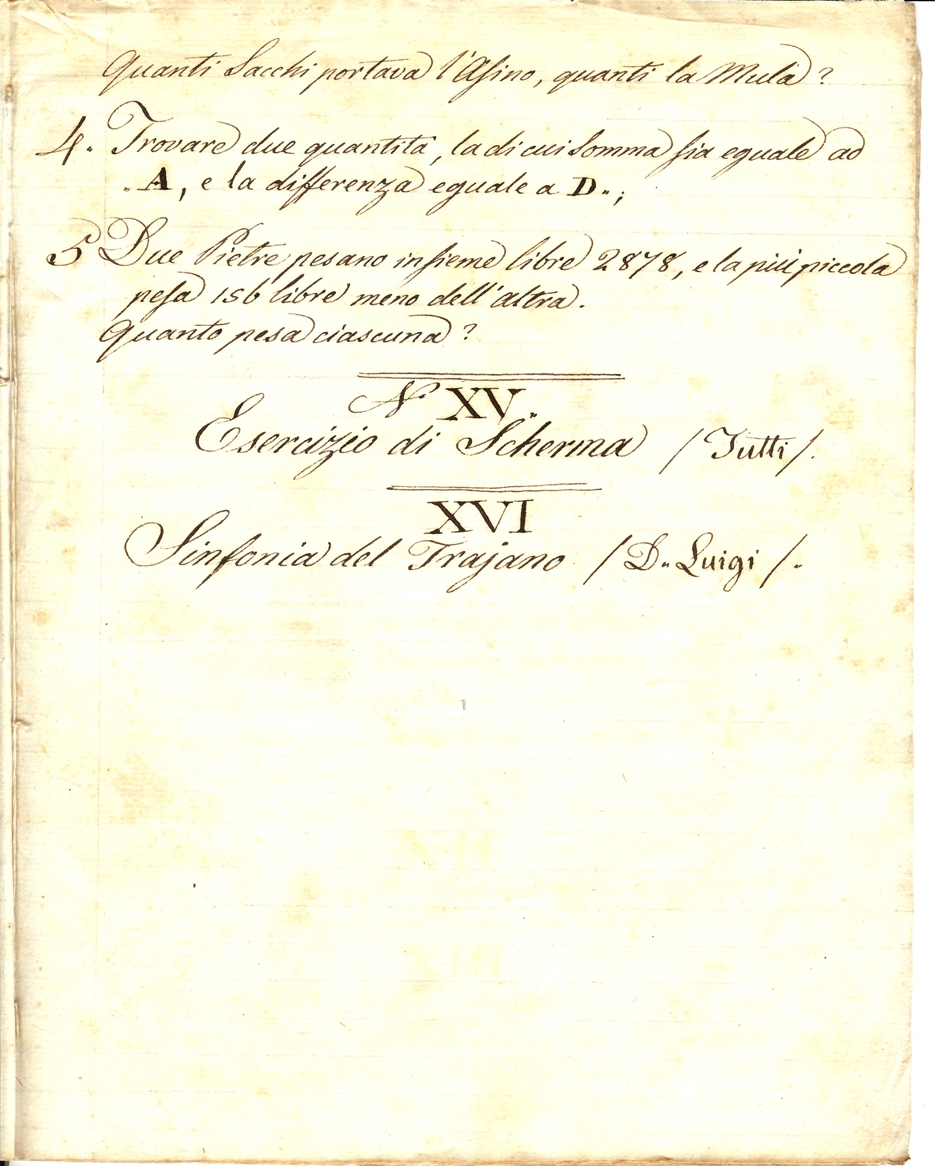 Quanti Sacchi portava l'Asino, quanti la Mula?
4. Trovare due quantità, la di cui Somma sia eguale ad
A, e la differenza eguale a D.;
5 Due Pietre pesano insieme libre 2878, e la più piccola
pesa 156 libre meno dell'altra.
Quanto pesa ciascuna?
N. XV.
Esercizio di Scherma /Tutti/.
XVI
Sinfonia del Trajano /D. Luigi/.